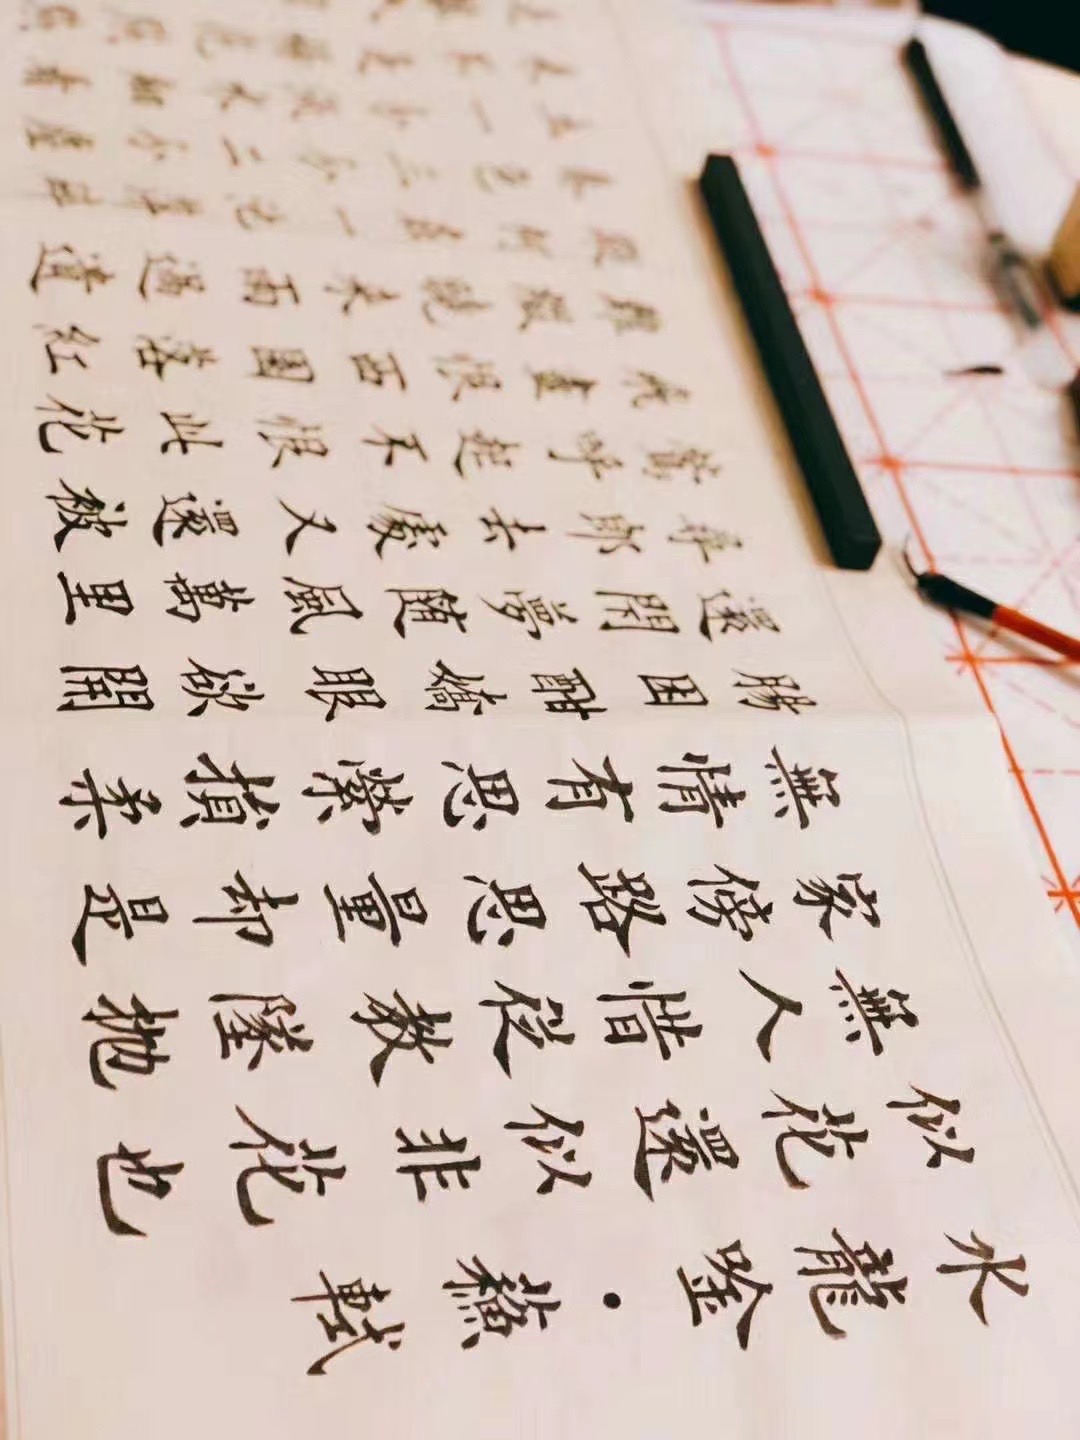 水龍唫·蘇軾
似花還似非花也
無人惜從教墜抛
家傍路思量却是
無情有思縈損柔
腸困酣嬌眼欲開
還閉夢随風萬里
尋郎去處又還被
鶯呼起不恨此花
飛盡恨西園落紅
難綴曉來雨過遺
蹤何在一池萍碎
春色三分二分塵
土一分流水細看
不是